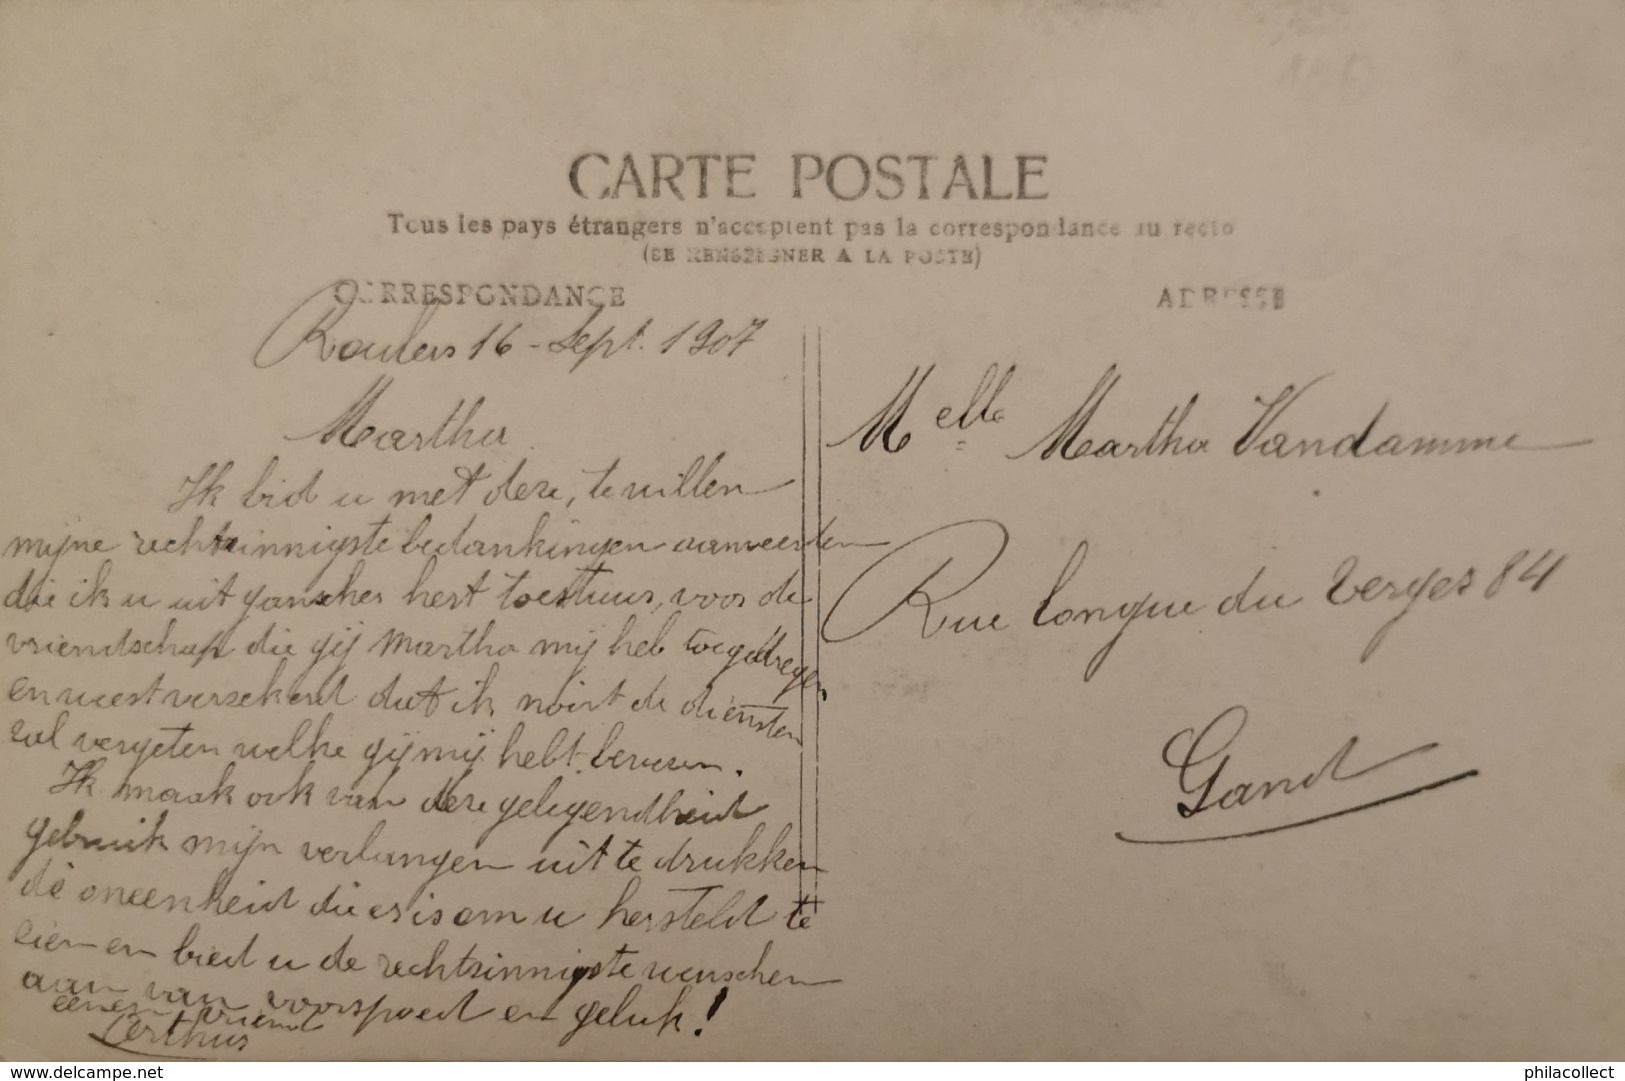 CARTE POSTALE
Tous les pays étrangers n'acceptent pas la correspondance au recto
(SE RENSEIGNER A LA POSTE)
CORRESPONDANCE
ADRESSE
Roulers 16 - Sept. 1907
Martha
Ik bid u met deze, te willen
mijne rechtzinnigste bedankingen aanveerden
die ik u uit ganscher hert toestuur, voor de
vriendschap die gij Martha mij heb toegedregen
en weest verzekerd dat ik noiit de diensten
zul vergeten welke gij mij hebt bewezen.
Ik maak ook van deze gelegendheid
gebruik mijn verlangen uit te drukken
de oneenheid die er is om u hersteld te
zien en bied u de rechtzinnigste wenschen
aan van voorspoed en geluk!
eenen vriend
Melle Martha Vandamme
Rue longue du Verger 84
Gand
delcampe.net
philacollect